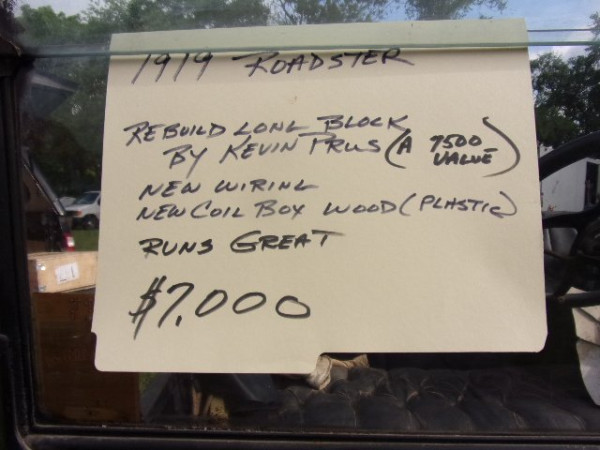 1919 ROADSTER
REBUILD LONG BLOCK
BY KEVIN PRUS (A 7500 VALUE)
NEW WIRING
NEW COIL BOX WOOD (PLASTIC)
RUNS GREAT
$7,000